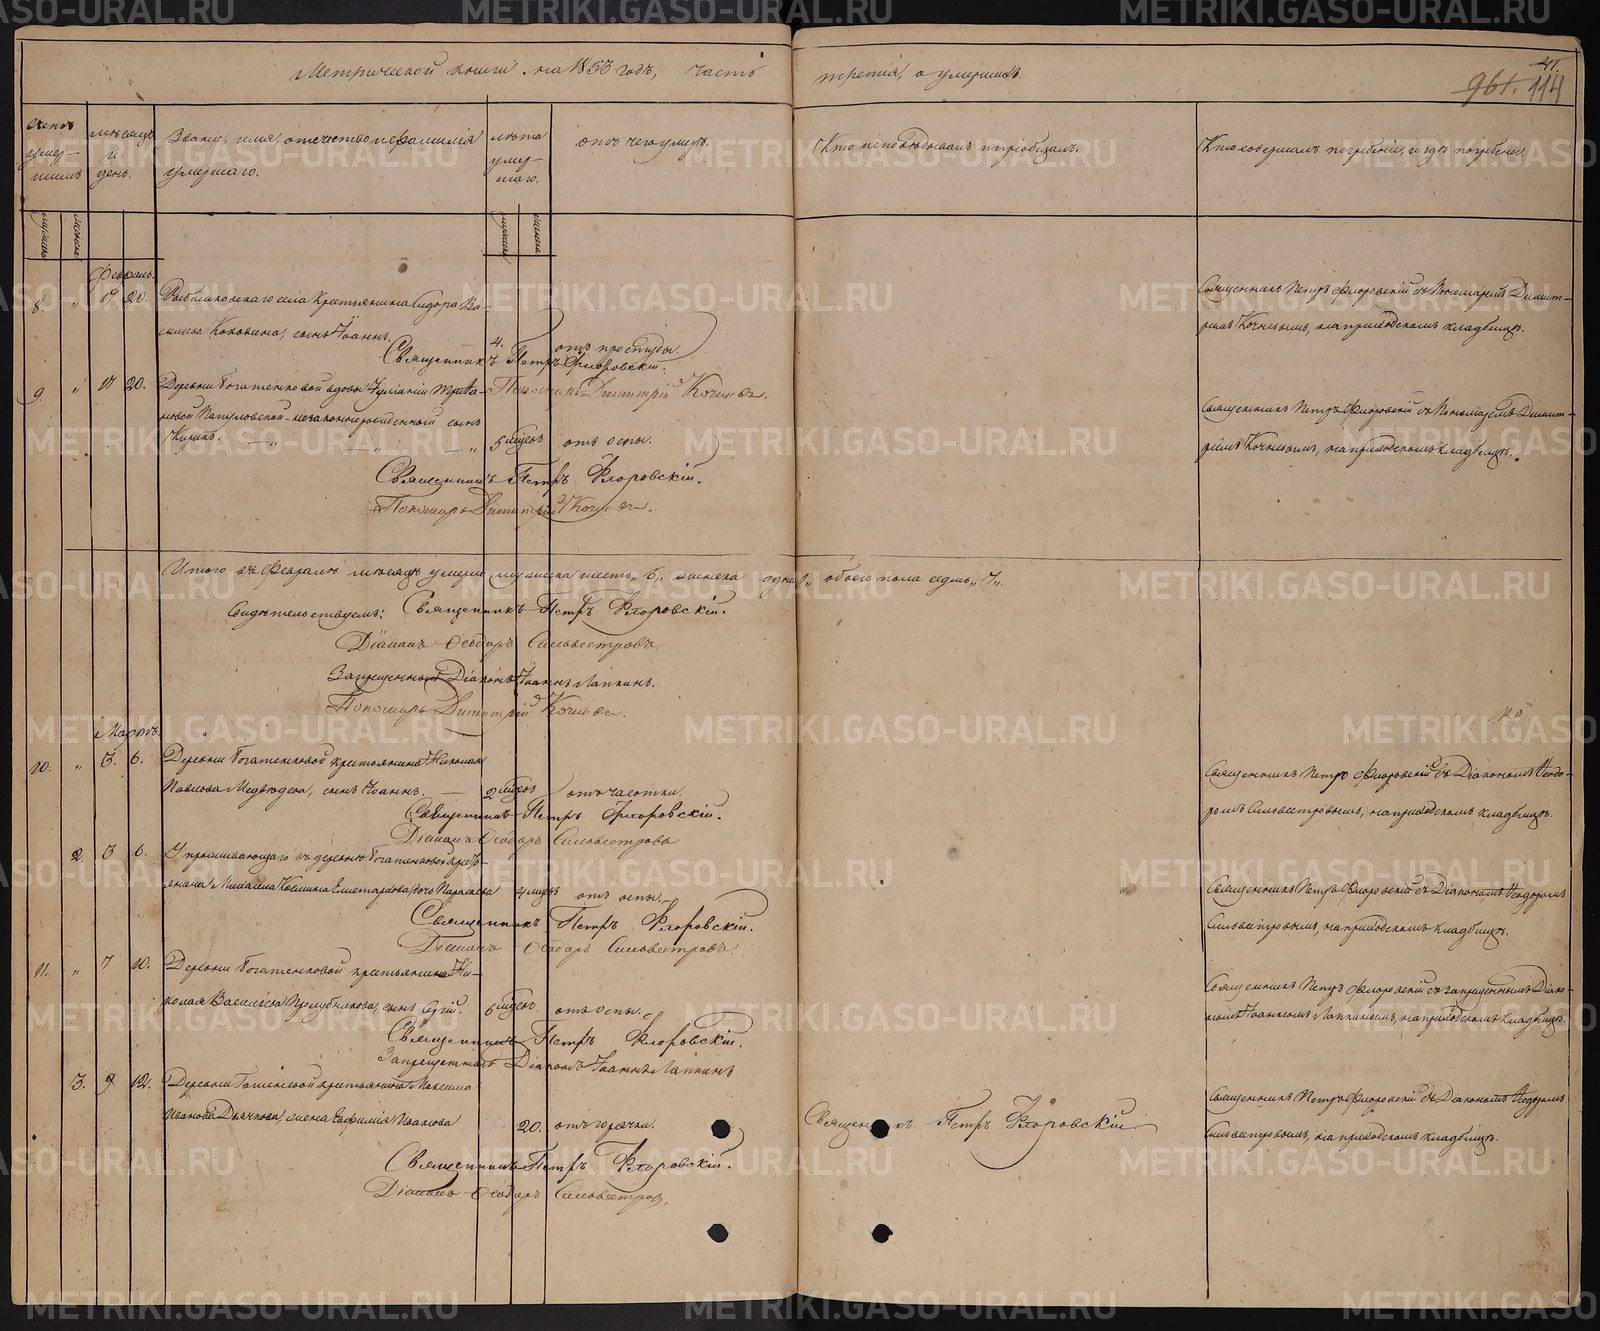 Метрической книги на 1853 годъ, часть третія, о умершихъ.
41.
961. 114
Счетъ умер-шихъ
мѣсяцъ и день.
Званіе, имя, отчество и фамилія умершаго.
лѣта умер-шаго.
отъ чего умеръ.
Кто исповѣдывалъ и пріобщалъ.
Кто совершалъ погребеніе, и гдѣ погребены.
мужска
женска
мужска
женска
Февраль.
8. „ 17 20. села Крестьянина Сидора Ва-
сильева Коковина, сынъ Іоаннъ. 4. отъ простуды.
Священникъ Петръ Флоровскій.
Пономарь Димитрій Кочневъ.
Священникъ Петръ Флоровскій съ Пономаремъ Димит-
ріемъ Кочневымъ, на приходскомъ кладбищѣ.
9. „ 17 20. Деревни Богатенковой вдовы
незаконнорожденный сынъ
5 мѣсяц. отъ оспы.
Священникъ Петръ Флоровскій.
Пономарь Димитрій Кочневъ.
Священникъ Петръ Флоровскій съ Пономаремъ Димит-
ріемъ Кочневымъ, на приходскомъ кладбищѣ.
Итого въ Февралѣ мѣсяцѣ умерло мужеска шесть „6„ женска одна 1„ обоего пола седмь „7„.
Свидѣтельствуемъ: Священникъ Петръ Флоровскій.
Діаконъ Ѳеодоръ Сильвестровъ
Запрещенный Діаконъ Іоаннъ Лапкинъ.
Пономарь Димитрій Кочневъ.
Мартъ.
10. „ 3. 6. Деревни Богатенковой крестьянина Николая
Павлова Медвѣдева, сынъ Іоаннъ. — 2 мѣсяц. отъ чахотки.
Священникъ Петръ Флоровскій.
Діаконъ Ѳеодоръ Сильвестровъ
Священникъ Петръ Флоровскій съ Діакономъ Ѳеодо-
ромъ Сильвестровымъ, на приходскомъ кладбищѣ.
2. 3 6. У проживающаго въ деревнѣ Богатенковой крест-
янина Михаила Козмина дочь Параскева 4 мѣсяц. отъ оспы.
Священникъ Петръ Флоровскій.
Діаконъ Ѳеодоръ Сильвестровъ.
Священникъ Петръ Флоровскій съ Діакономъ Ѳеодоромъ
Сильвестровымъ, на приходскомъ кладбищѣ.
11. „ 7 10. Деревни Богатенковой крестьянина Ни-
колая Васильева сынъ Сергій. 6 мѣсяц. отъ оспы.
Священникъ Петръ Флоровскій.
Запрещенный Діаконъ Іоаннъ Лапкинъ
Священникъ Петръ Флоровскій съ запрещеннымъ Діако-
номъ Іоанномъ Лапкинымъ, на приходскомъ кладбищѣ.
3. 9 12. Деревни крестьянина Максима
Иванова Дьячкова, жена Евфимія Иванова 20. отъ горячки.
Священникъ Петръ Флоровскій.
Діаконъ Ѳеодоръ Сильвестровъ.
Священникъ Петръ Флоровскій
Священникъ Петръ Флоровскій съ Діакономъ Ѳеодоромъ
Сильвестровымъ, на приходскомъ кладбищѣ.
METRIKI.GASO-URAL.RU